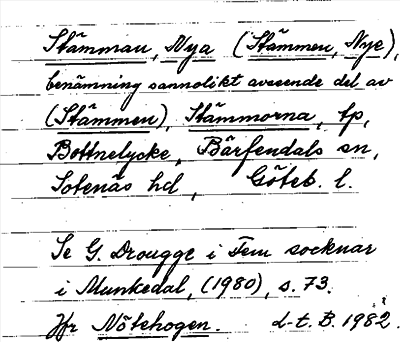 Stämman, Nya (Stämmen, Nye),
benämning sannolikt avseende del av
(Stämmen), Stämmorna, tp,
Bottnelycke, Bärfendals sn,
Sotenäs hd, Göteb. l.
Se G. Drougge i Fem socknar
i Munkedal, (1980), s. 73.
Jfr Nötehogen. d-t. B. 1982.